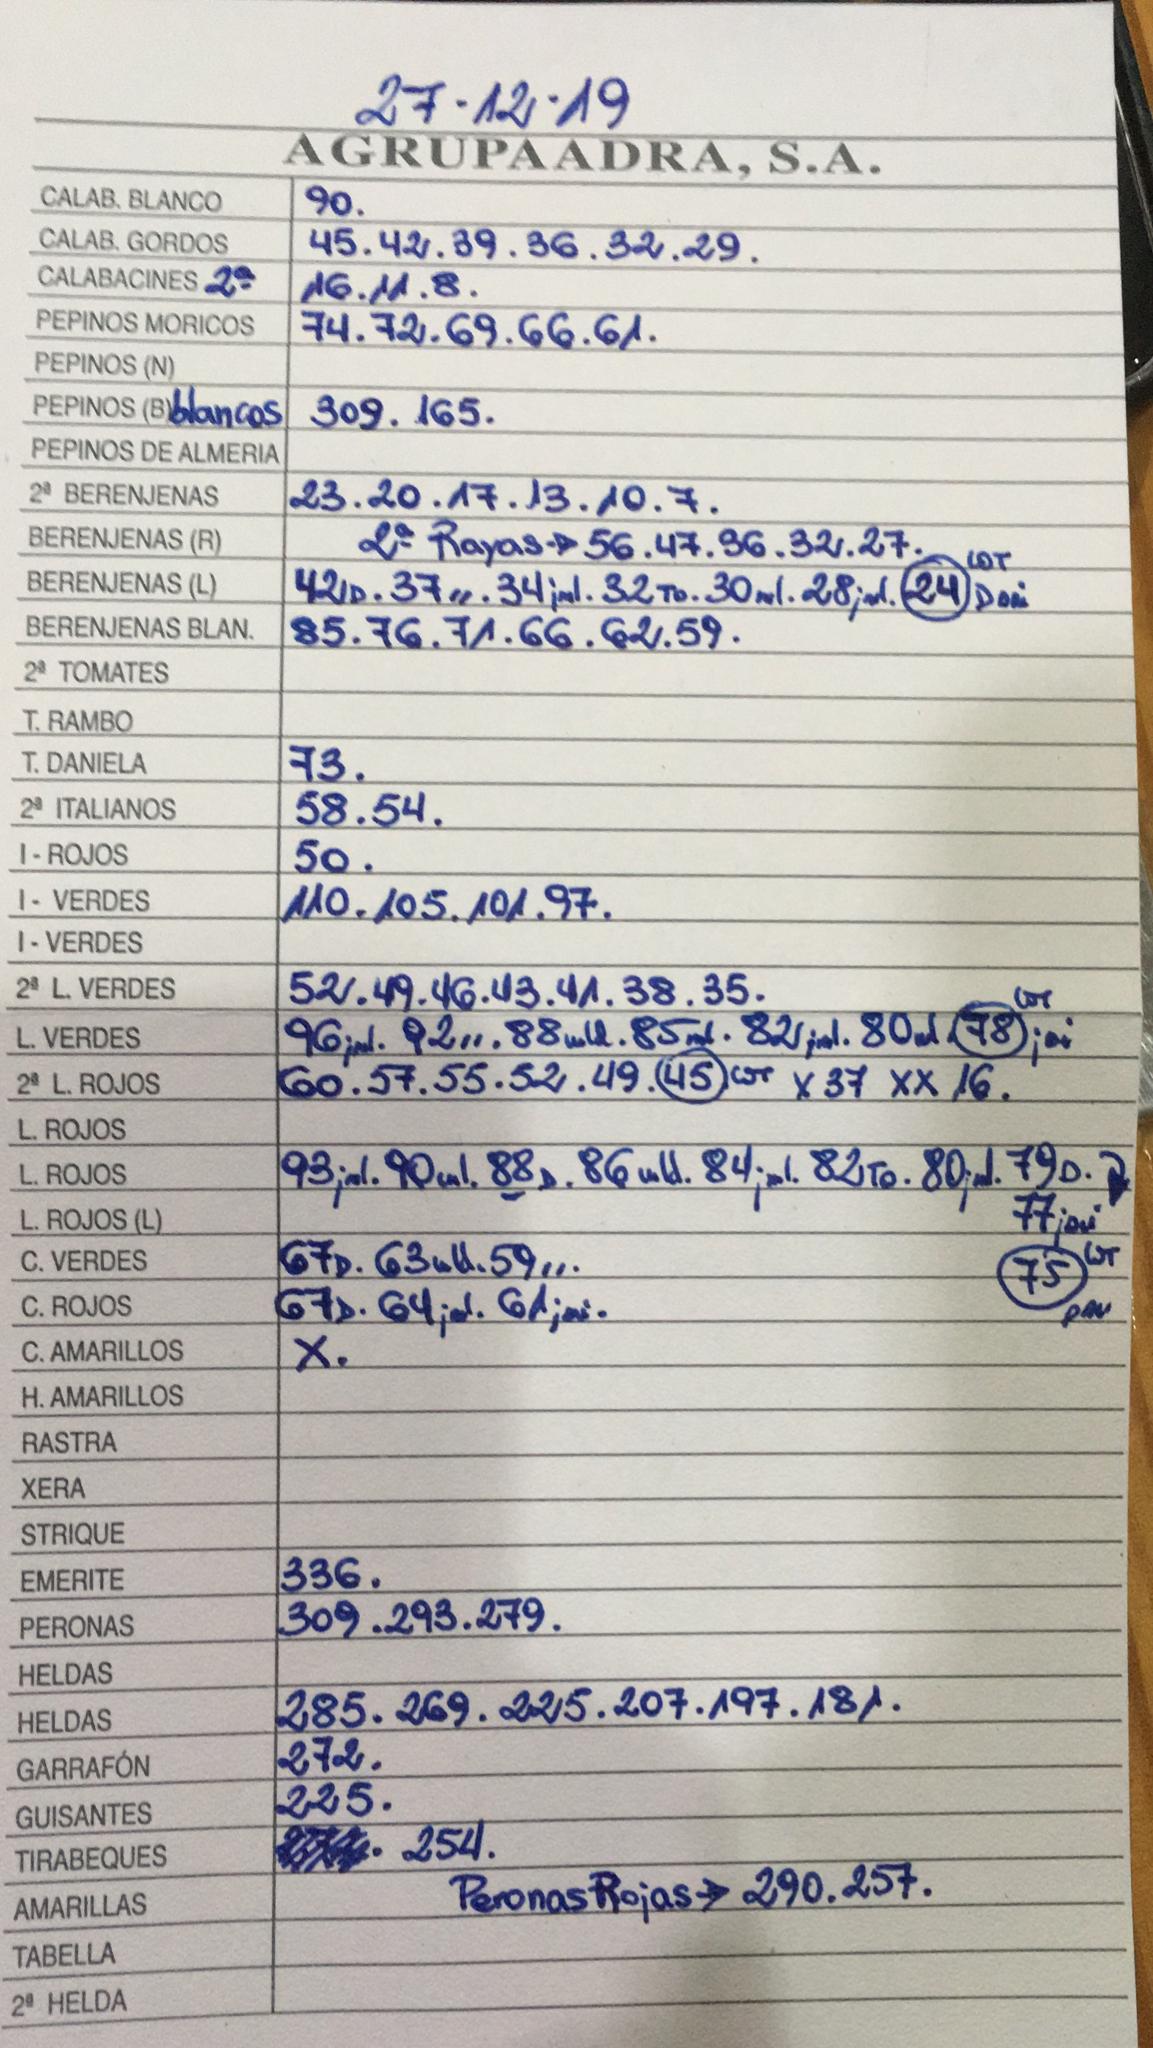 27-12-19
AGRUPAADRA, S.A.
CALAB. BLANCO 90.
CALAB. GORDOS 45.42.39.36.32.29.
CALABACINES 2ª 16.11.8.
PEPINOS MORICOS 74.72.69.66.61.
PEPINOS (N)
PEPINOS (B) blancos 309.165.
PEPINOS DE ALMERIA
2ª BERENJENAS 23.20.17.13.10.7.
BERENJENAS (R) 2ª Rayas→56.47.36.32.27.
BERENJENAS (L) 42D.37,,.34jml.32To.30ml.28jml.24
BERENJENAS BLAN. 85.76.71.66.62.59.
2ª TOMATES
T. RAMBO
T. DANIELA 73.
2ª ITALIANOS 58.54.
I - ROJOS 50.
I - VERDES 110.105.101.97.
I - VERDES
2ª L. VERDES 52.49.46.43.41.38.35.
L. VERDES 96jml.92,,.88.85ml.82jml.80ml.78
2ª L. ROJOS 60.57.55.52.49.45 x 37 xx 16.
L. ROJOS
L. ROJOS 93jml.90ml.88D.86.84jml.82To.80jml.79D.
L. ROJOS (L) 77
C. VERDES 67D.63.59,,. 75
C. ROJOS 67D.64jml.61
C. AMARILLOS X.
H. AMARILLOS
RASTRA
XERA
STRIQUE
EMERITE 336.
PERONAS 309.293.279.
HELDAS
HELDAS 285.269.225.207.197.181.
GARRAFÓN 272.
GUISANTES 225.
TIRABEQUES 254.
AMARILLAS Peronas Rojas→290.257.
TABELLA
2ª HELDA